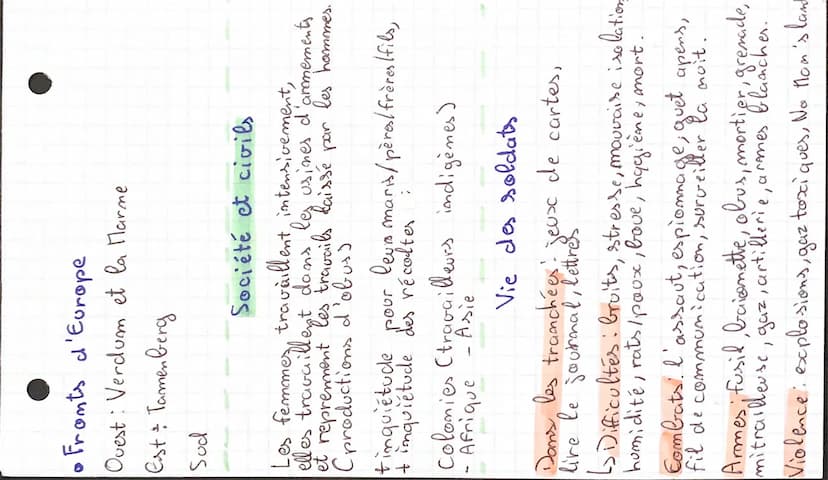 • Fronts d'Europe
Ouest : Verdum et la Marne
Est : Tannenberg
Sud
Société et civils
Les femmes travaillent intensivement,
elles travaillent dans les usines d'armements
et reprennent les travails laissé par les hommes.
(productions d'obus)
+ inquiétude pour leurs maris/pères/frères/fils,
+ inquiétude des récoltes :
Colonies (travailleurs indigènes)
- Afrique - Asie
Vie des soldats
Dans les tranchées : jeux de cartes,
lire le journal, lettres
↳ Difficultés : bruits, stresse, mauvaise isolation
humidité, rats/poux, boue, hygiène, mort.
Combats : l'assaut, espionnage, guet apens,
fil de communication, surveiller la nuit.
Armes : Fusil, baionnette, obus, mortier, grenade,
mitrailleuse, gaz, artillerie, armes blanches.
Violence : explosions, gaz toxiques, No Man's land